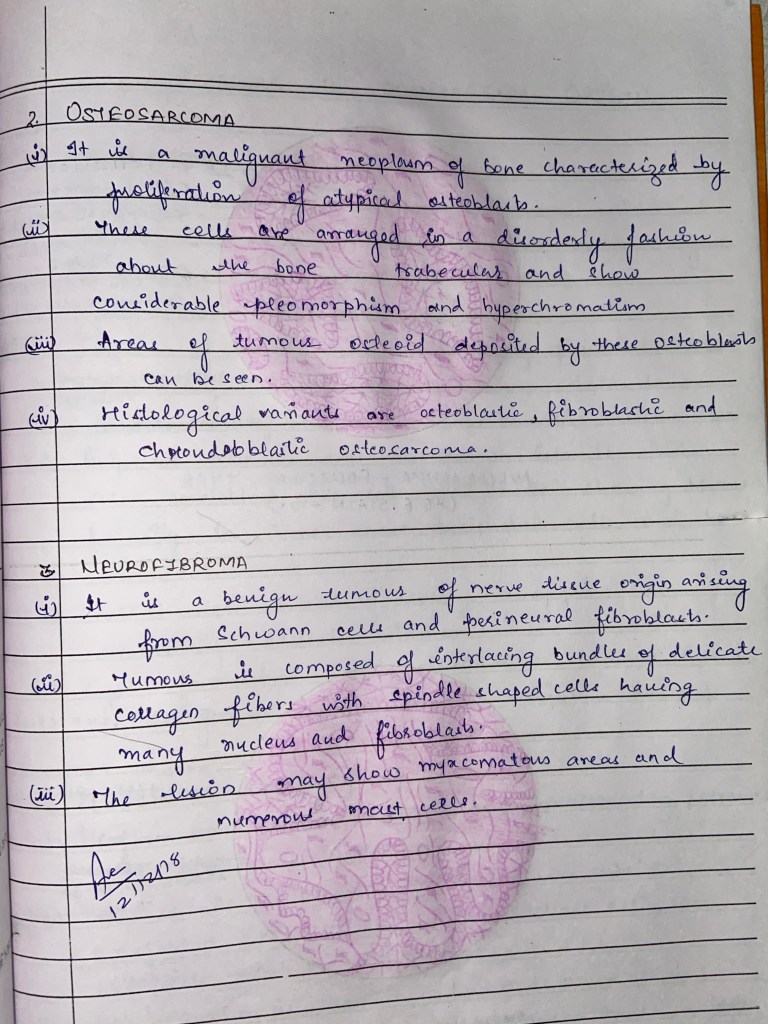 2. OSTEOSARCOMA
(i) It is a malignant neoplasm of bone characterized by
proliferation of atypical osteoblasts.
(ii) These cells are arranged in a disorderly fashion
about the bone trabeculas and show
considerable pleomorphism and hyperchromatism
(iii) Areas of tumous osteoid deposited by these osteoblasts
can be seen.
(iv) Histological variants are osteoblastic, fibroblastic and
chrondobblastic osteosarcoma.
3 NEUROFIBROMA
(i) It is a benign tumous of nerve tissue origin arising
from Schwann cells and perineural fibroblasts.
(ii) Tumous is composed of interlacing bundles of delicate
collagen fibers with spindle shaped cells having
many nucleus and fibroblasts.
(iii) The lesion may show myxcomatous areas and
numerous mast cells.